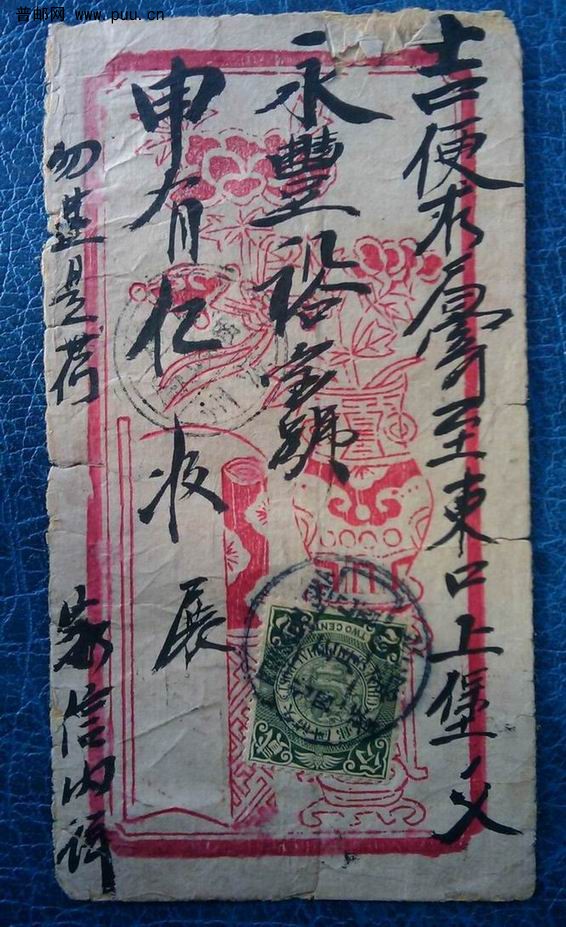 普邮网 www.puu.cn
吉便求寄至東口上堡交
永豐裕寶號
申有仁收展
勿遲是荷
家信內詳
TWO CENT